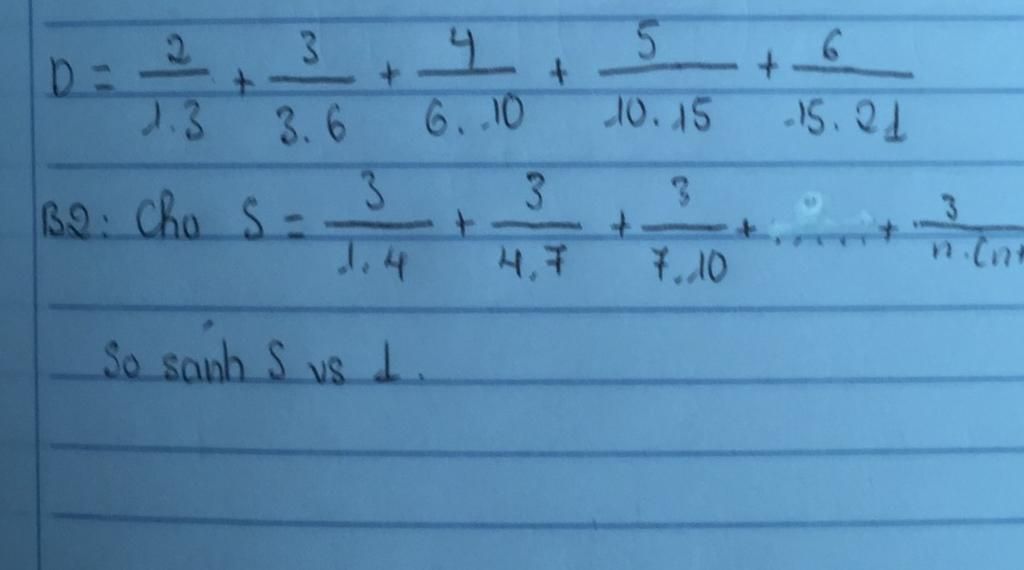 D = 2/1.3 + 3/3.6 + 4/6.10 + 5/10.15 + 6/15.21
B2: Cho S = 3/1.4 + 3/4.7 + 3/7.10 + ...... + 3/n.(n+
So sánh S vs 1.